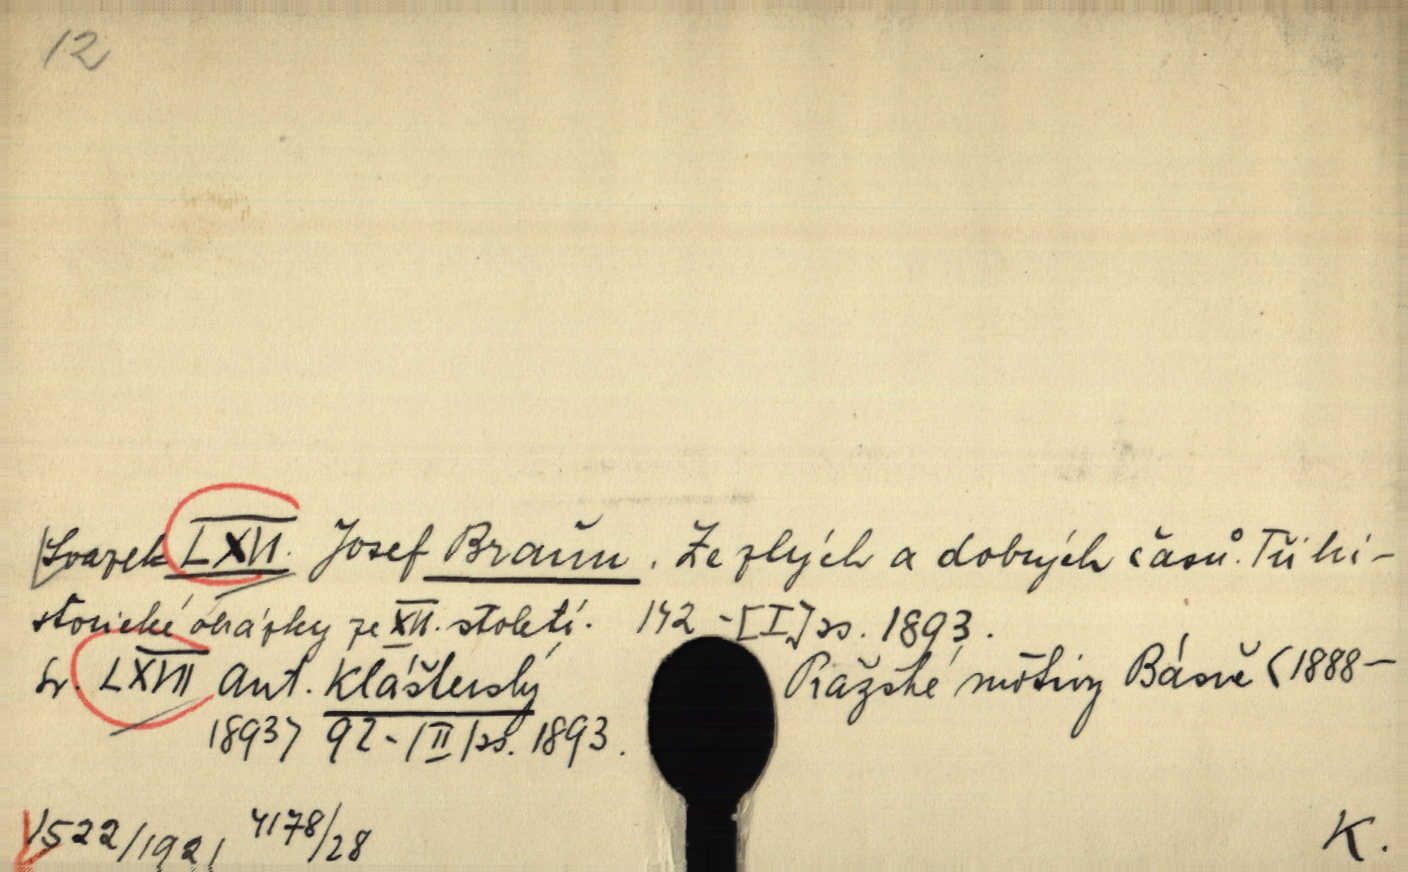 12
Svazek LXVI. Josef Braun. Ze zlých a dobrých časů. Tři hi-
storické obrázky ze XVI. století. 142 - [I] ss. 1893.
Sv. LXVII Ant. Klášterský Pražské motivy Básně (1888-
1893) 92 - [II] ss. 1893.
1522/1921 4178/28
K.